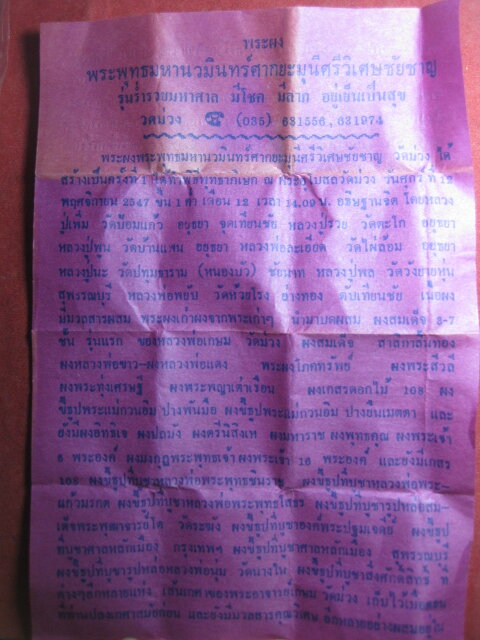 พระผง
พระพุทธมหานวมินทร์ศากยะมุนีศรีวิเศษชัยชาญ
รุ่นร่ำรวยมหาศาล มีโชค มีลาภ อยู่เย็นเป็นสุข
วัดม่วง ☎ (035) 631556, 631974
พระผงพระพุทธมหานวมินทร์ศากยะมุนีศรีวิเศษชัยชาญ วัดม่วง ได้
สร้างเป็นครั้งที่ 1 ได้ทำพิธีพุทธาภิเษก ณ พระอุโบสถวัดม่วง วันศุกร์ ที่ 12
พฤศจิกายน 2547 ขึ้น 1 ค่ำ เดือน 12 เวลา 14.09 น. อธิษฐานจิต โดยหลวง
ปู่เพิ่ม วัดป้อมแก้ว อยุธยา จุดเทียนชัย หลวงปู่รวย วัดตะโก อยุธยา
หลวงปู่พูน วัดบ้านแพน อยุธยา หลวงพ่อละเอียด วัดไผ่ล้อม อยุธยา
หลวงปู่นะ วัดปทุมธาราม (หนองบัว) ชัยนาท หลวงปู่พล วัดวังยายหุ่น
สุพรรณบุรี หลวงพ่อพยับ วัดห้วยโรง อ่างทอง ดับเทียนชัย เนื้อผง
มีมวลสารผสม พระผงเก่าผงจากพระเก่าๆ นำมาบดผสม ผงสมเด็จ 3-7
ชั้น รุ่นแรก ของหลวงพ่อเกษม วัดม่วง ผงสมเด็จ สาลิกาลิ้นทอง
ผงหลวงพ่อขาว-ผงหลวงพ่อแดง พระผงโภคทรัพย์ ผงพระสีวลี
ผงพระทุ่งเศรษฐี ผงพระพญาเต่าเรือน ผงเกสรดอกไม้ 108 ผง
ขี้ธูปพระแม่กวนอิม ปางพันมือ ผงขี้ธูปพระแม่กวนอิม ปางยืนเมตตา และ
ยังมีผงอิทธิเจ ผงปถมัง ผงตรีนิสิงเห ผงมหาราช ผงพุทธคุณ ผงพระเจ้า
5 พระองค์ ผงมงกุฎพระพุทธเจ้า ผงพระเจ้า 16 พระองค์ และยังมีเกสร
108 ผงขี้ธูปที่บูชาหลวงพ่อพระพุทธชินราช ผงขี้ธูปที่บูชาหลวงพ่อพระ-
แก้วมรกต ผงขี้ธูปที่บูชาหลวงพ่อพระพุทธโสธร ผงขี้ธูปที่บูชารูปหล่อสม-
เด็จพระพุฒาจารย์โต วัดระฆัง ผงขี้ธูปที่บูชาองค์พระปฐมเจดีย์ ผงขี้ธูป
ที่บูชาศาลหลักเมือง กรุงเทพฯ ผงขี้ธูปที่บูชาศาลหลักเมือง สุพรรณบุรี
ผงขี้ธูปที่บูชารูปหล่อหลวงพ่อนุ่ม วัดนางใน ผงขี้ธูปที่บูชาสิ่งศักดิ์สิทธิ์ ที่
ต่างๆอีกหลายแห่ง เส้นเกศาของพระอาจารย์เกษม วัดม่วง เก็บไว้
และยังมีมวลสารคุณวิเศษ อีกหลายอย่าง